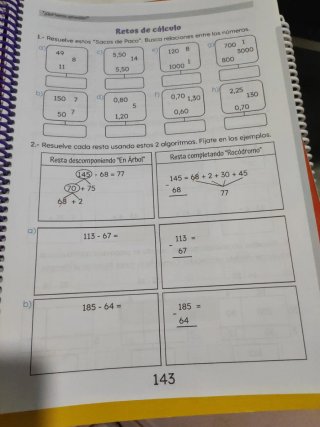 Retos de cálculo
1.- Resuelve estos "Sacos de Paco". Busca relaciones entre los números.
a) 49 8 11
c) 5,50 14 5,50
e) 120 8 1000 1
g) 700 1 3000 800
b) 150 7 50 7
d) 0,80 5 1,20
f) 0,70 1,30 0,60
h) 2,25 130 0,70
2.- Resuelve cada resta usando estos 2 algoritmos. Fíjate en los ejemplos.
Resta descomponiendo "En Árbol"
145 - 68 = 77
70 + 75
68 + 2
Resta completando "Recódromo"
- 145 = 68 + 2 + 30 + 45
68
77
a) 113 - 67 =
- 113 =
67
b) 185 - 64 =
- 185 =
64
143